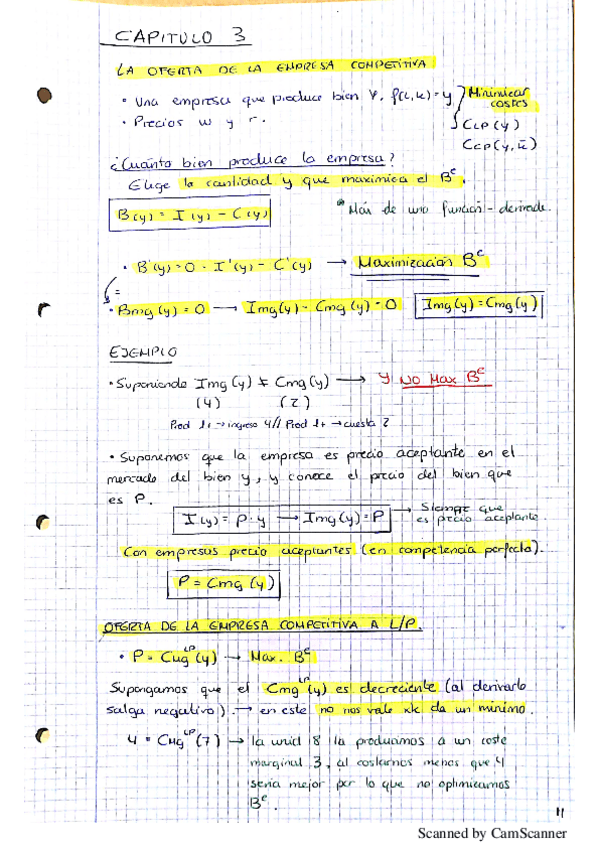 CAPITULO 3
LA OFERTA DE LA EMPRESA COMPETITIVA
• Una empresa que produce bien Y, f(L,K) = y Minimizar costes
• Precios w y r. CLP(y)
CCP(y, k̄)
¿Cuánto bien produce la empresa?
Elige la cantidad y que maximiza el Bº.
B(y) = I(y) - C(y) * Más de una función - derivada.
• B'(y) = 0 - I'(y) - C'(y) → Maximización Bº
=
• Bmg(y) = 0 → Img(y) - Cmg(y) = 0 Img(y) = Cmg(y)
EJEMPLO
• Suponiendo Img(y) ≠ Cmg(y) → y NO Max Bº
(4) (2)
Prod 1+ → ingreso 4 // Prod 1+ → cuesta 2
• Suponemos que la empresa es precio aceptante en el
mercado del bien y, y conoce el precio del bien que
es P.
I(y) = P · y → Img(y) = P → Siempre que
es precio aceptante.
Con empresas precio aceptantes (en competencia perfecta).
P = Cmg(y)
OFERTA DE LA EMPRESA COMPETITIVA A L/P.
• P = Cmg LP (y) → Max. Bº
Supongamos que el Cmg LP (y) es decreciente (al derivarlo
salga negativo). → en este no nos vale xk da un mínimo.
4 = CMg LP (7) → la unid 8 la producimos a un coste
marginal 3, al costarnos menos que 4
sería mejor por lo que no optimizamos
Bº.
11
Scanned by CamScanner